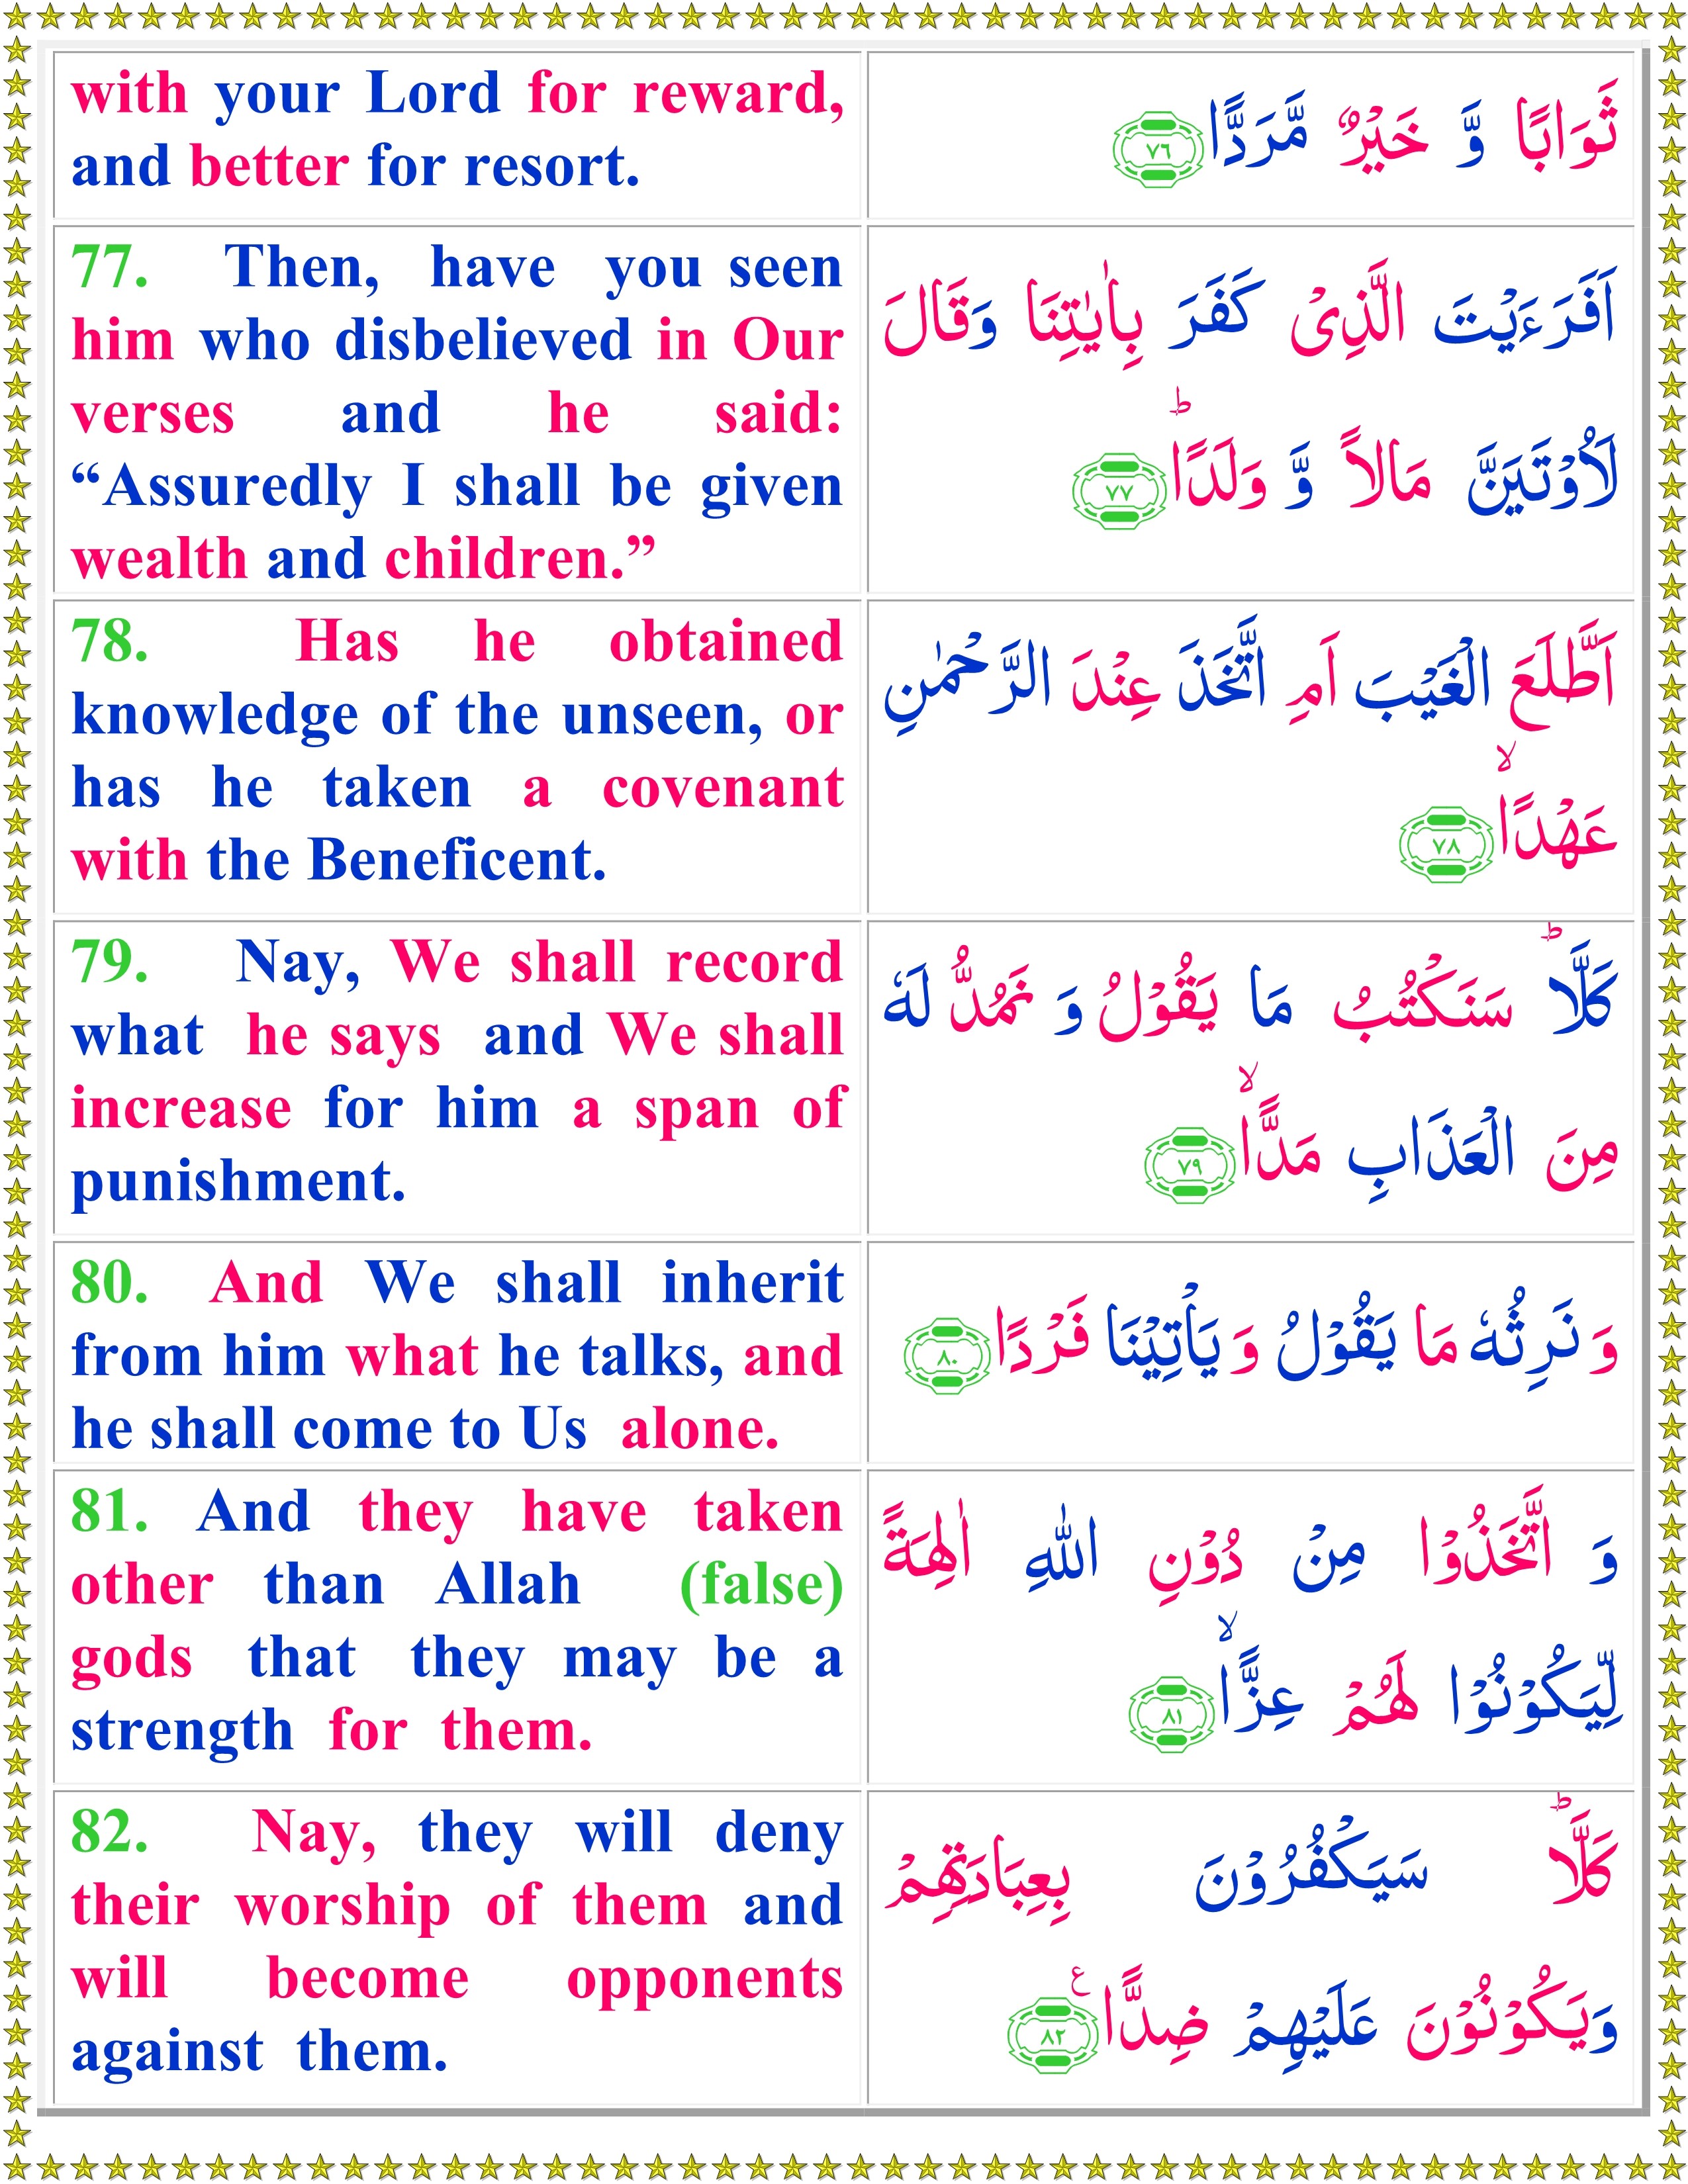 with your Lord for reward,
and better for resort.
ثَوَابًا وَّ خَيْرٌ مَّرَدًّا ﴿۷۶﴾
77. Then, have you seen
him who disbelieved in Our
verses and he said:
“Assuredly I shall be given
wealth and children.”
اَفَرَءَيْتَ الَّذِىْ كَفَرَ بِاٰيٰتِنَا وَقَالَ
لَاُوْتَيَنَّ مَالاً وَّ وَلَدًا ؕ ﴿۷۷﴾
78. Has he obtained
knowledge of the unseen, or
has he taken a covenant
with the Beneficent.
اَطَّلَعَ الْغَيْبَ اَمِ اتَّخَذَ عِنْدَ الرَّحْمٰنِ
عَهْدًا ۙ ﴿۷۸﴾
79. Nay, We shall record
what he says and We shall
increase for him a span of
punishment.
كَلَّا ؕ سَنَكْتُبُ مَا يَقُوْلُ وَ نَمُدُّ لَهٗ
مِنَ الْعَذَابِ مَدًّا ۙ ﴿۷۹﴾
80. And We shall inherit
from him what he talks, and
he shall come to Us alone.
وَ نَرِثُهٗ مَا يَقُوْلُ وَ يَاْتِيْنَا فَرْدًا ﴿۸۰﴾
81. And they have taken
other than Allah (false)
gods that they may be a
strength for them.
وَ اتَّخَذُوْا مِنْ دُوْنِ اللّٰهِ اٰلِهَةً
لِّيَكُوْنُوْا لَهُمْ عِزًّا ۙ ﴿۸۱﴾
82. Nay, they will deny
their worship of them and
will become opponents
against them.
كَلَّا ؕ سَيَكْفُرُوْنَ بِعِبَادَتِهِمْ
وَيَكُوْنُوْنَ عَلَيْهِمْ ضِدًّا ع ﴿۸۲﴾